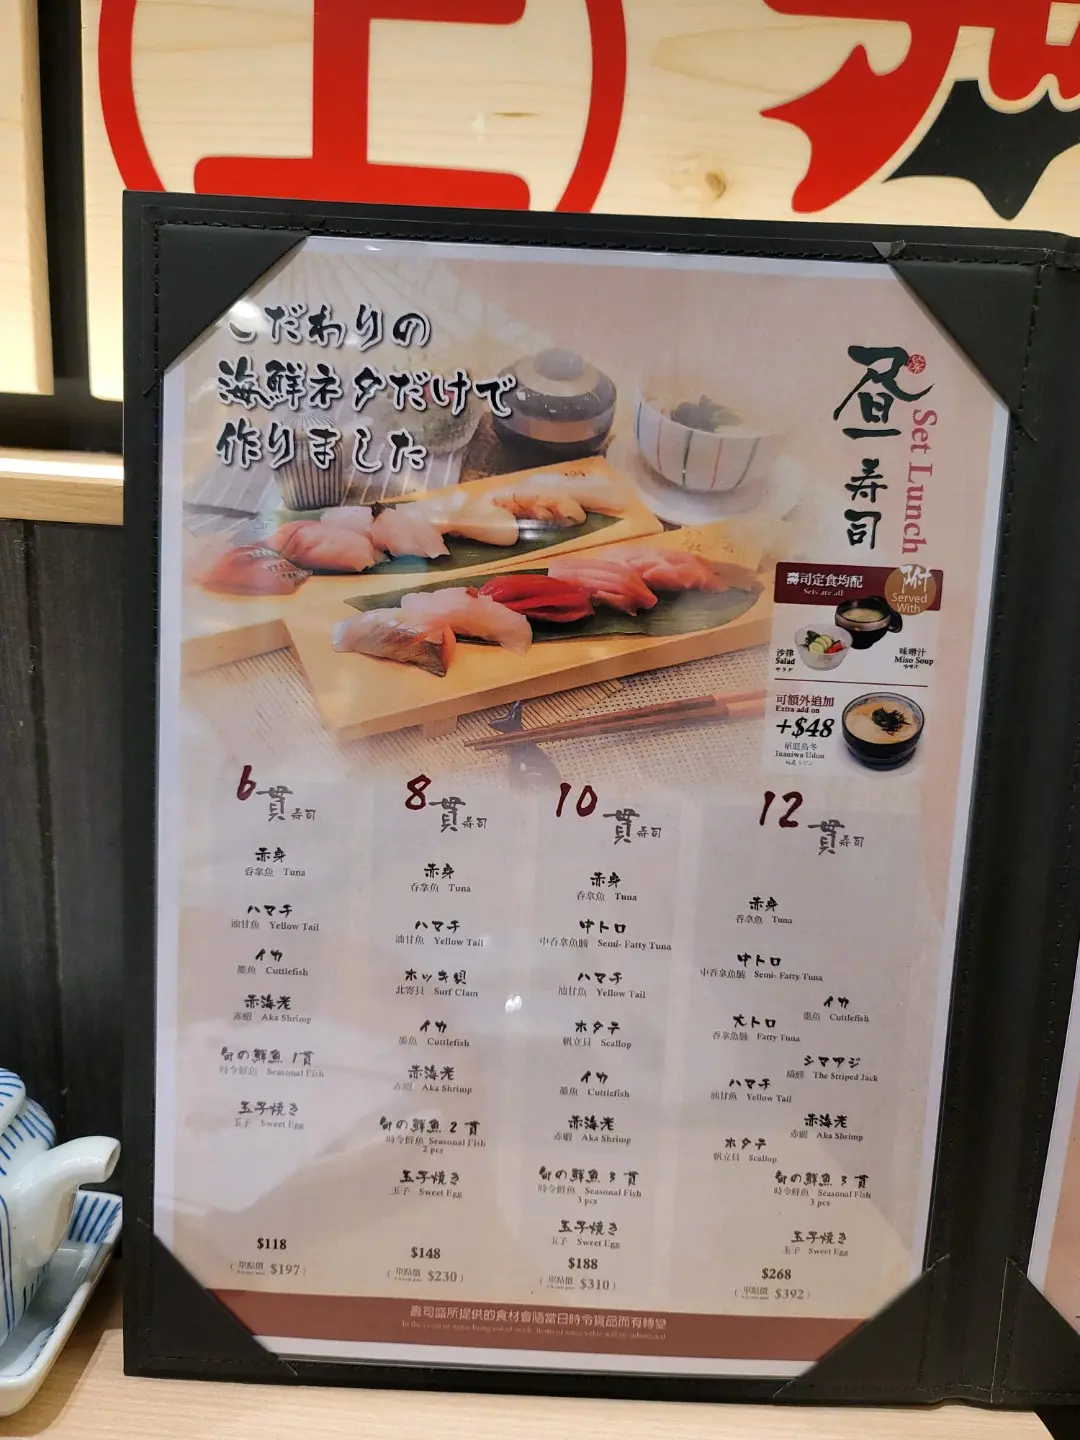 こだわりの
海鮮ネタだけで
作りました
昼
寿司
Set Lunch
壽司定食均配
Sets are all
附
Served
With
沙律
Salad
サラダ
味噌汁
Miso Soup
味噌汁
可額外追加
Extra add on
+$48
稻庭烏冬
Inaniwa Udon
6貫寿司
赤身
吞拿魚 Tuna
ハマチ
油甘魚 Yellow Tail
イカ
墨魚 Cuttlefish
赤海老
赤蝦 Aka Shrimp
旬の鮮魚 1貫
時令鮮魚 Seasonal Fish
玉子焼き
玉子 Sweet Egg
$118
(單點價 $197)
8貫寿司
赤身
吞拿魚 Tuna
ハマチ
油甘魚 Yellow Tail
ホッキ貝
北寄貝 Surf Clam
イカ
墨魚 Cuttlefish
赤海老
赤蝦 Aka Shrimp
旬の鮮魚 2貫
時令鮮魚 Seasonal Fish
2 pcs
玉子焼き
玉子 Sweet Egg
$148
(單點價 $230)
10貫寿司
赤身
吞拿魚 Tuna
中トロ
中吞拿魚腩 Semi- Fatty Tuna
ハマチ
油甘魚 Yellow Tail
ホタテ
帆立貝 Scallop
イカ
墨魚 Cuttlefish
赤海老
赤蝦 Aka Shrimp
旬の鮮魚 3貫
時令鮮魚 Seasonal Fish
3 pcs
玉子焼き
玉子 Sweet Egg
$188
(單點價 $310)
12貫寿司
赤身
吞拿魚 Tuna
中トロ
中吞拿魚腩 Semi- Fatty Tuna
イカ
墨魚 Cuttlefish
大トロ
吞拿魚腩 Fatty Tuna
シマアジ
縞鰺 The Striped Jack
ハマチ
油甘魚 Yellow Tail
赤海老
赤蝦 Aka Shrimp
ホタテ
帆立貝 Scallop
旬の鮮魚 3貫
時令鮮魚 Seasonal Fish
3 pcs
玉子焼き
玉子 Sweet Egg
$268
(單點價 $392)
壽司盛所提供的食材會隨當日時令貨品而有轉變